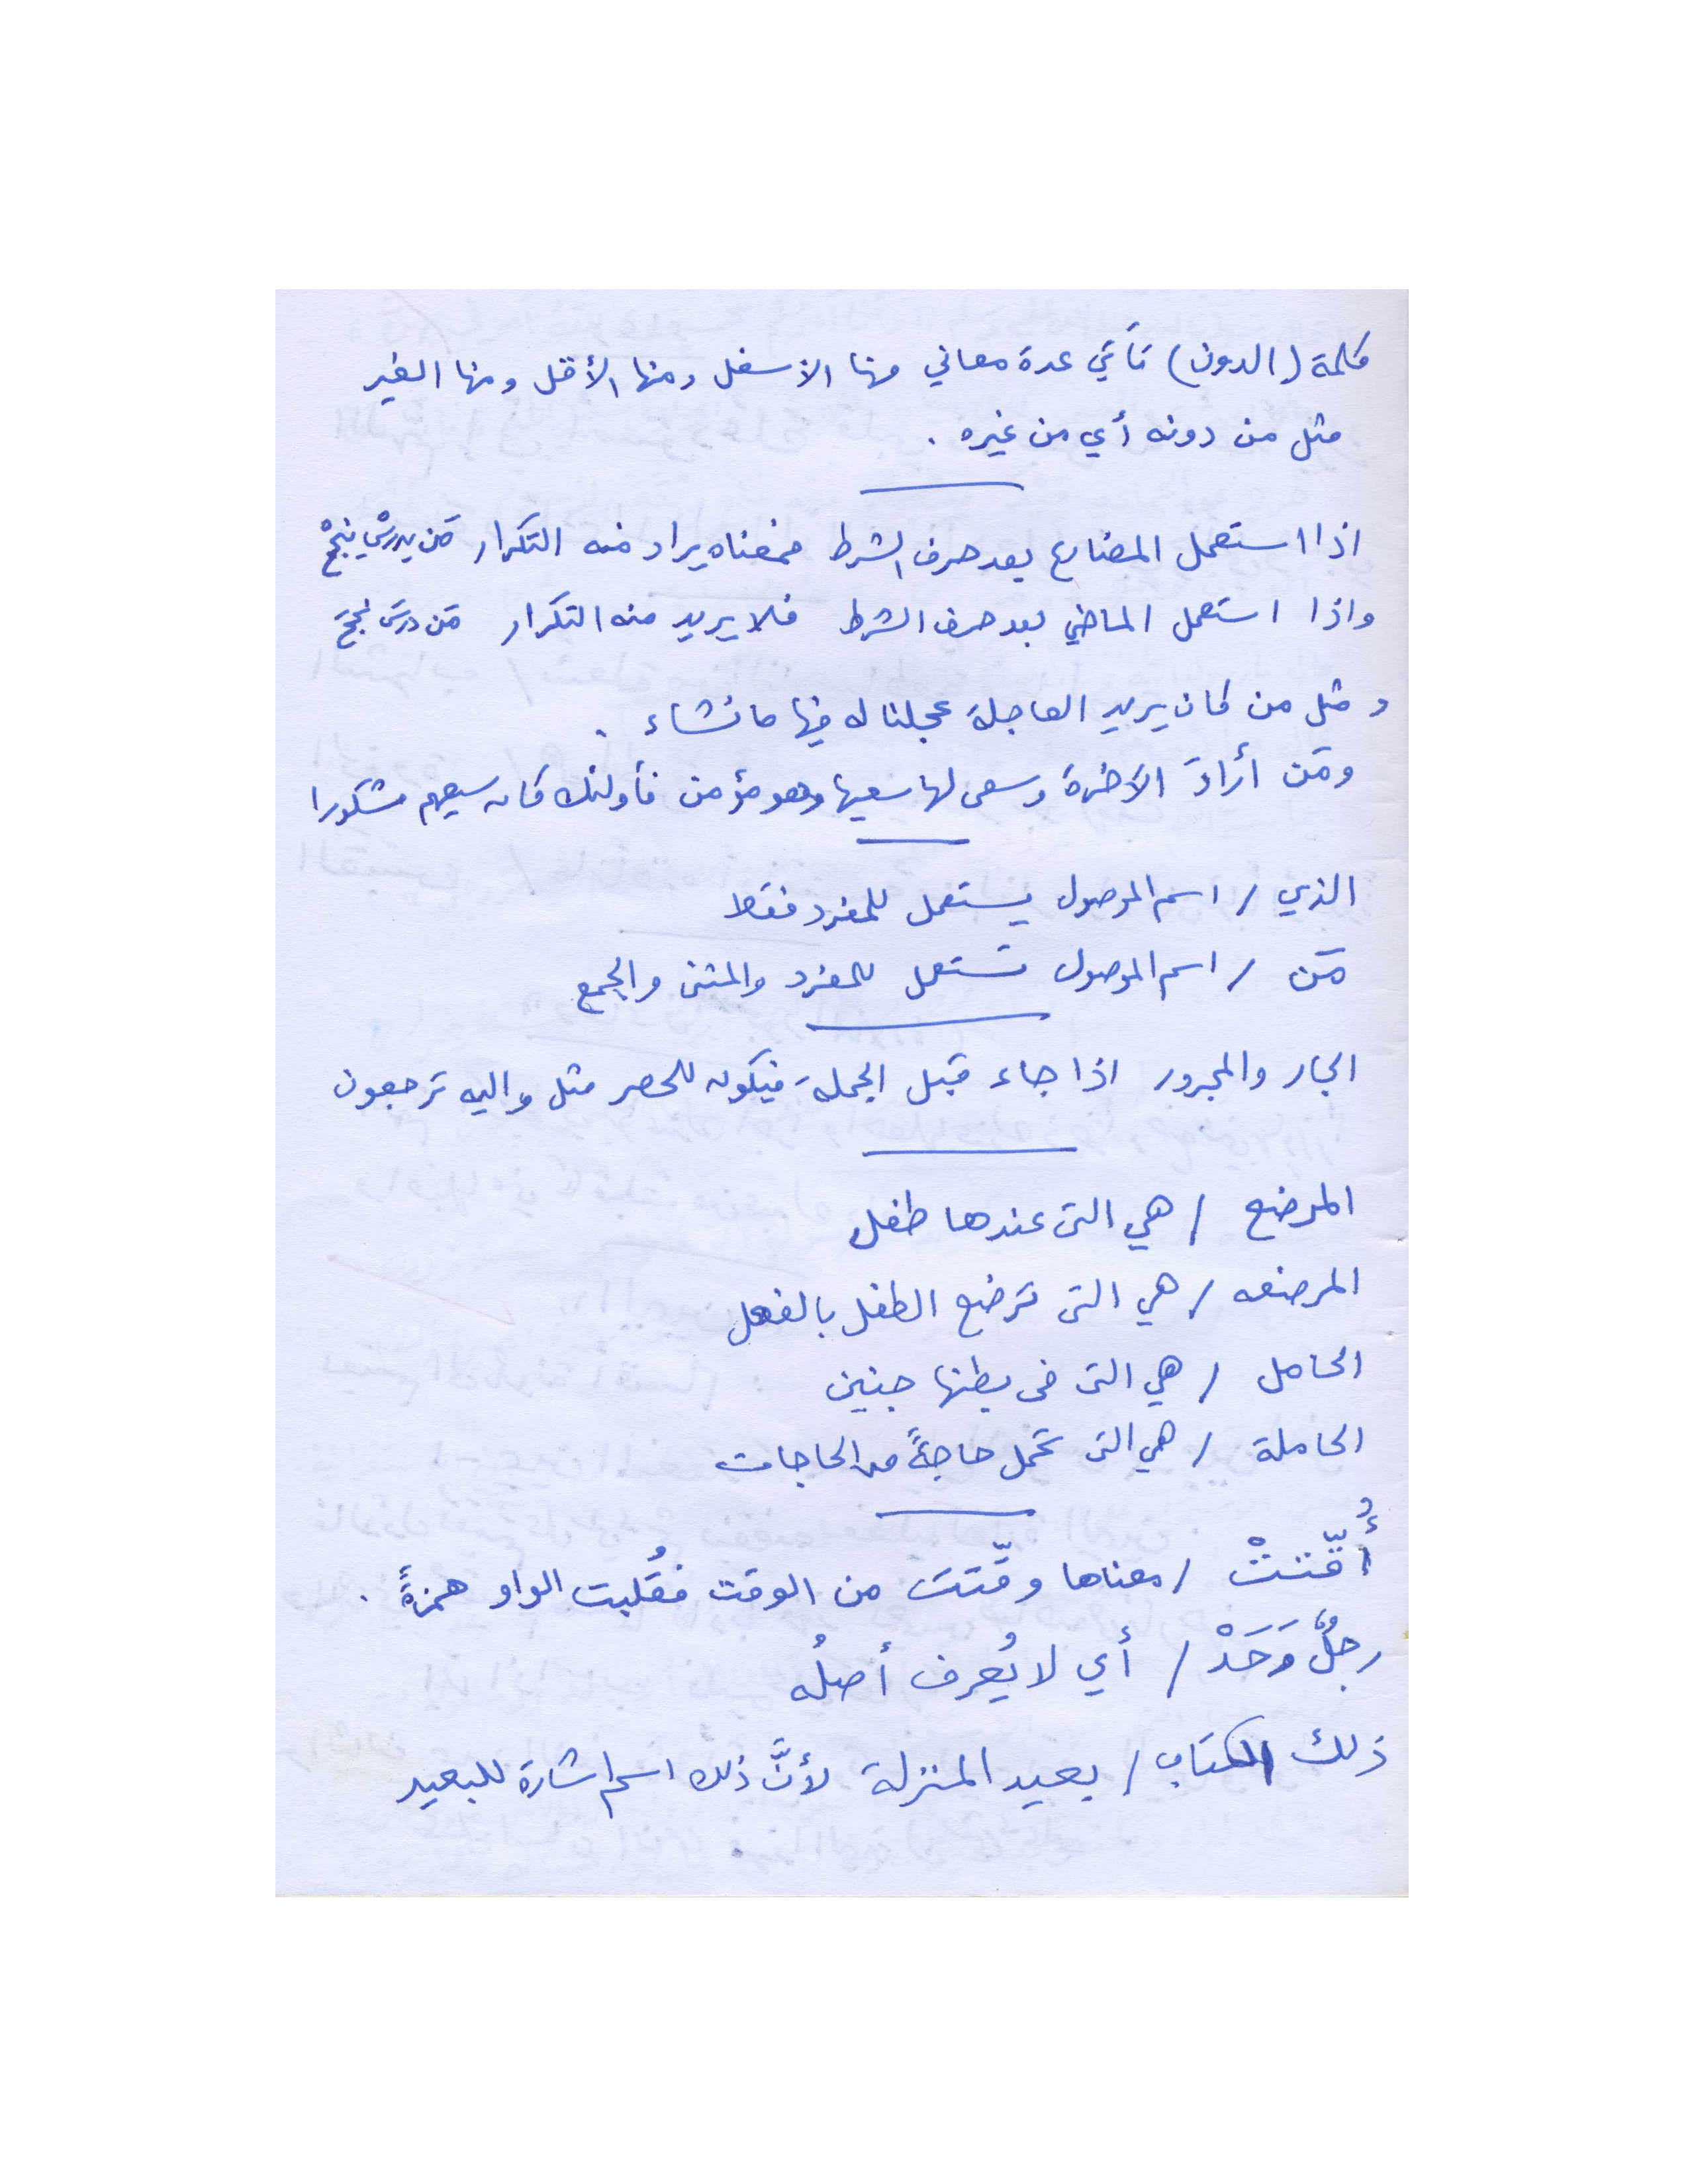 كلمة (الدون) تأتي عدة معاني منها الاسفل ومنها الأقل ومنها الغير
مثل من دونه أي من غيره .
اذا استعمل المضارع بعد حرف الشرط فمعناه يراد منه التكرار مَن يدرسْ ينجحْ
واذا استعمل الماضي بعد حرف الشرط فلا يريد منه التكرار مَن درسَ نجحَ
و مثل من كان يريد العاجلة عجلنا له فيها ما نشاء .
ومَن أرادَ الآخرة وسعى لها سعيها وهو مؤمن فأولئك كان سعيهم مشكورا
الذي / اسم الموصول يستعمل للمفرد فقط
مَن / اسم الموصول تستعمل للمفرد والمثنى والجمع
الجار والمجرور اذا جاء قبل الجملة فيكون للحصر مثل واليه ترجعون
المرضع / هي التى عندها طفل
المرضعه / هي التى ترضع الطفل بالفعل
الحامل / هي التى فى بطنها جنين
الحاملة / هي التى تحمل حاجةً من الحاجات
أُقّتتْ / معناها وقّتت من الوقت فقُلبت الواو همزةً .
رجلٌ وَحَدْ / أي لا يُعرف أصلُه
ذلك الكتاب / بعيد المنزلة لأنَّ ذلك اسم اشارة للبعيد